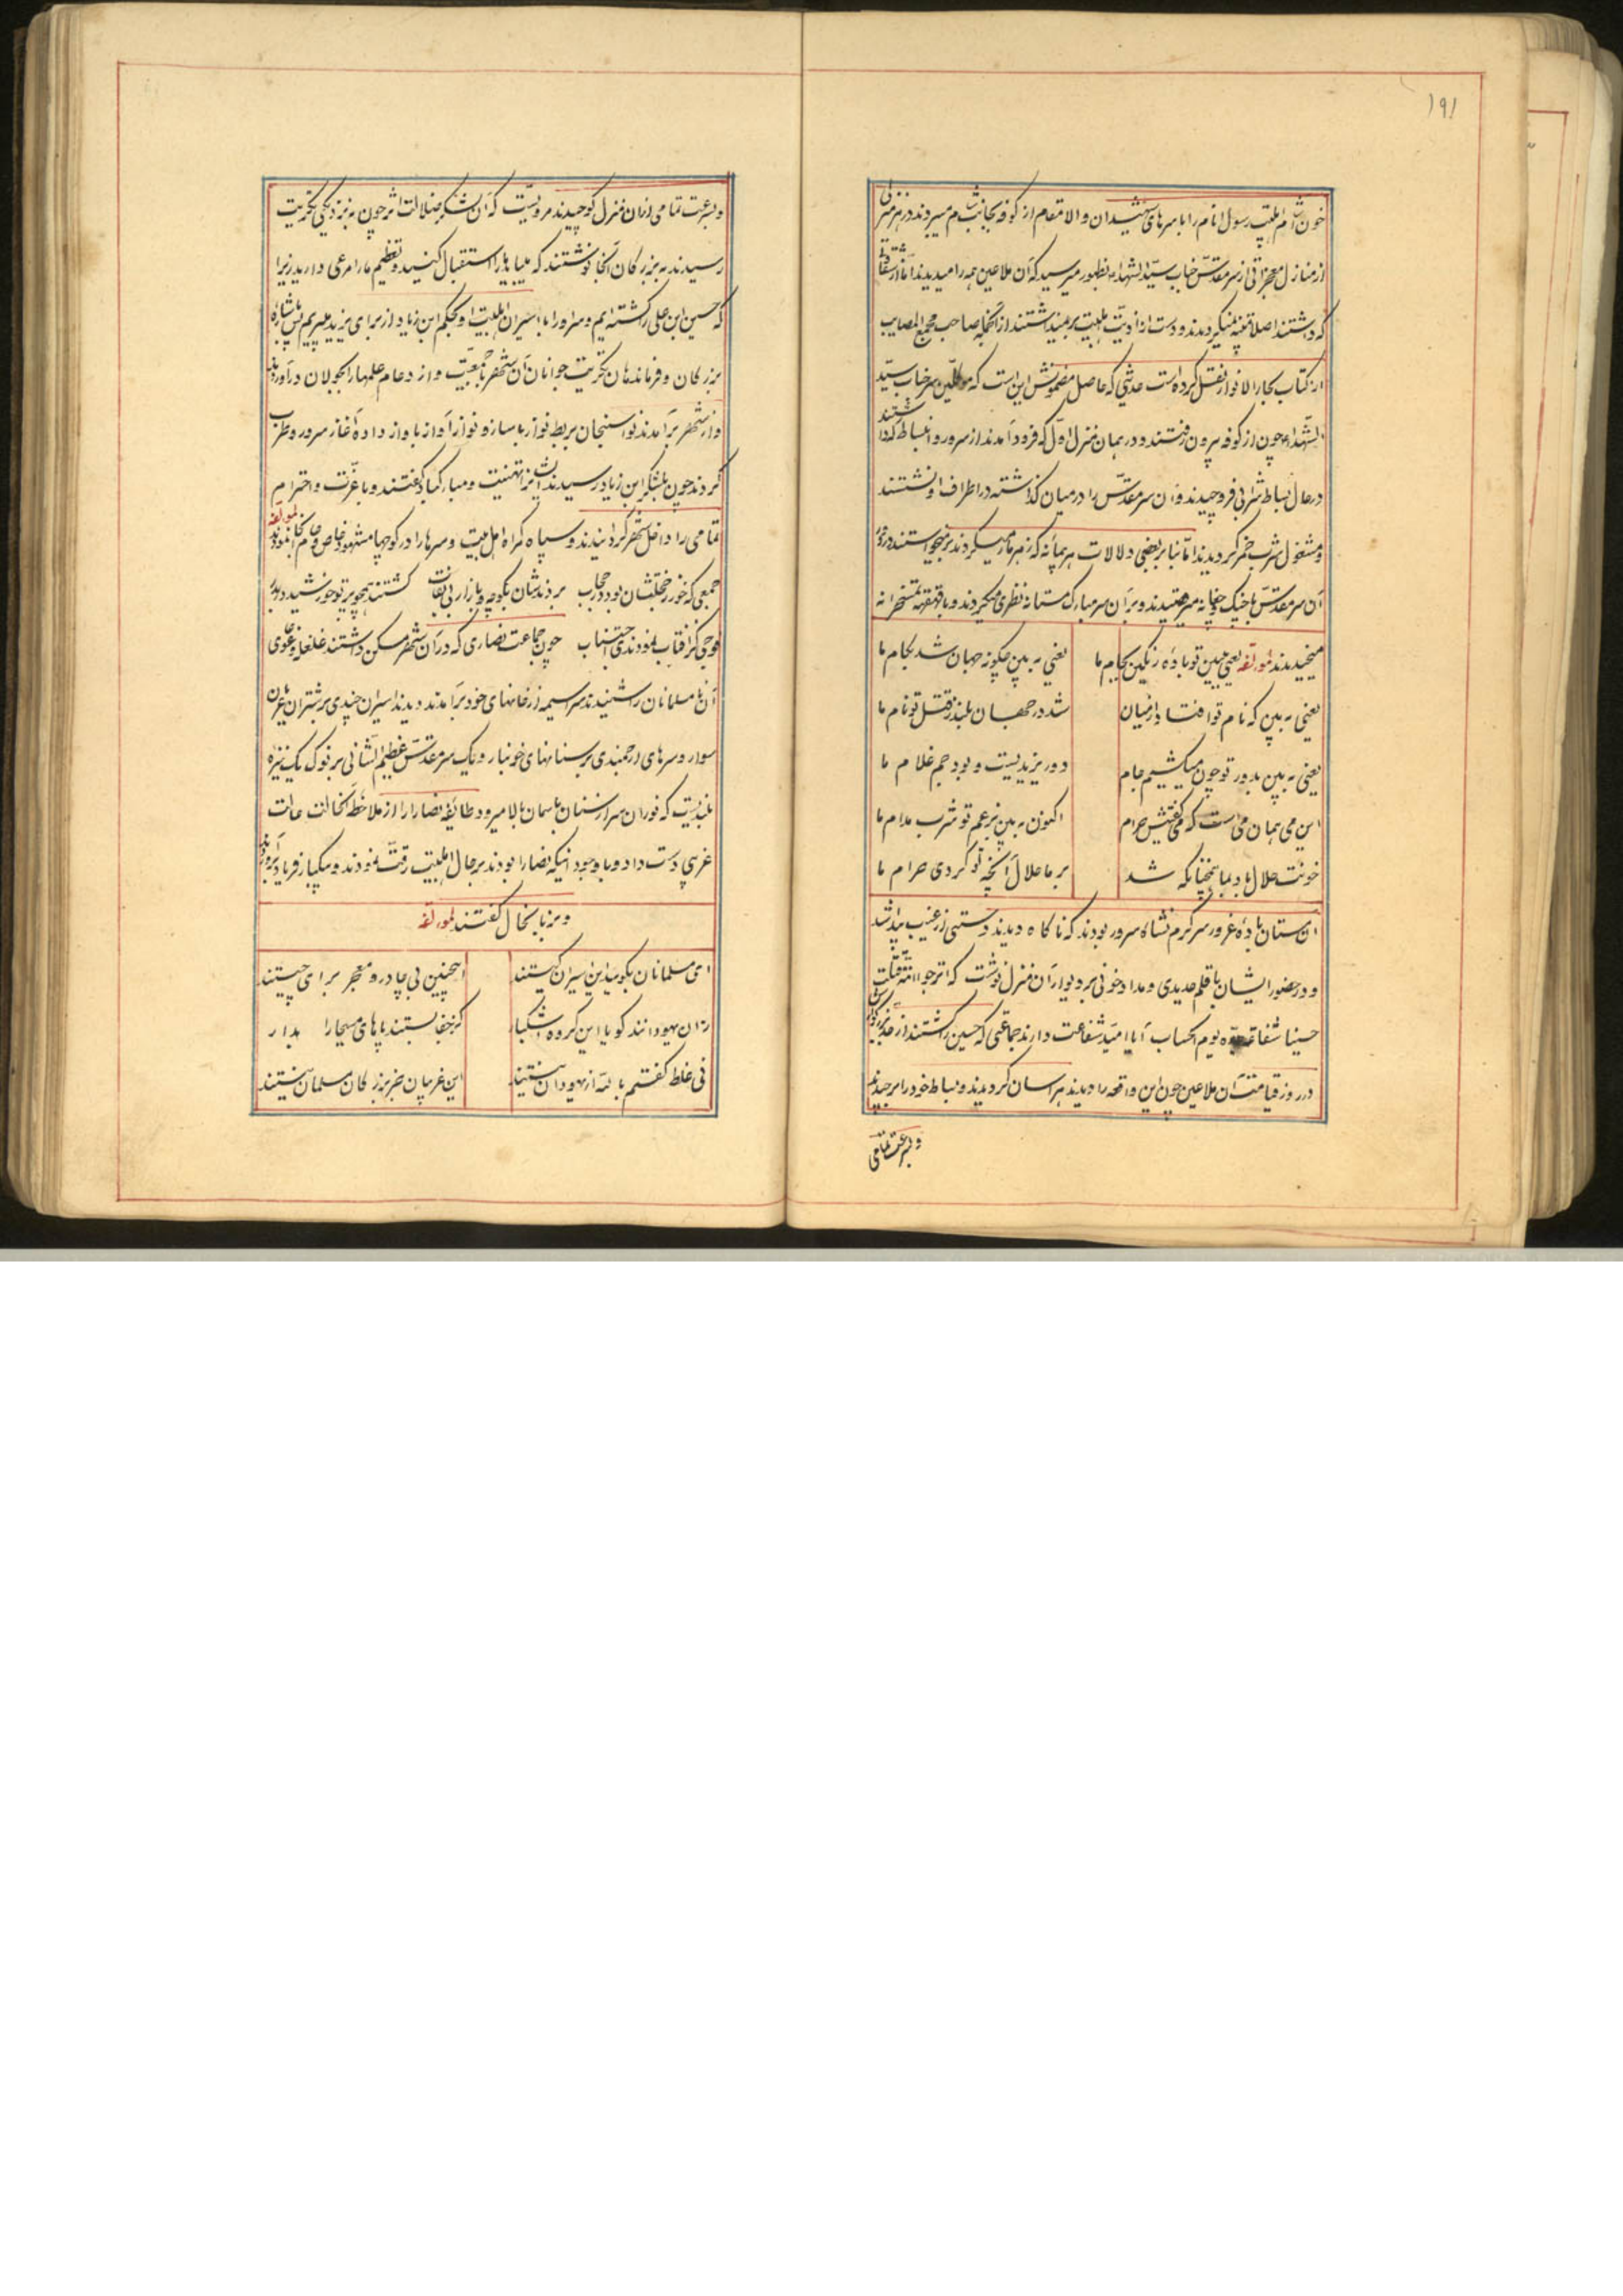 ۱۹۱
خون آشام اهلبیت رسول انام را با سرهای شهیدان والامقام از کوفه بجانب شام میبردند در هر منزلی
از منازل معجزاتی از سر مقدس جناب سید الشهداء بظهور میرسید که آن ملاعین همه را میدیدند اما از شقاوتی
که داشتند اصلا متنبه نمیگردیدند و دست از اذیت اهلبیت بر نمیداشتند از آنجمله صاحب مجمع المصایب
از کتاب بحار الانوار نقل کرده است حدیثی که حاصل مضمونش این است که موکلین سر جناب سید
الشهداء چون از کوفه بیرون رفتند و در همان منزل اول که فرود آمدند از سرور و انبساط که داشتند
در حال بساط شرابی فرو چیدند و آن سر مقدس را در میان گذاشته در اطراف او نشستند
و مشغول شرب خمر گردیدند اما بنا بر بعضی دلالات هر پیمانه که زهر مار میکردند بر میخواستند در دور
آن سر مقدس با چنگ و چغانه میرقصیدند و بر آن سر مبارک مستانه نظری میکردند و با قهقهه تمسخرانه
میخندیدند لمؤلفه یعنی ببین تو باده رنگین بجام ما
یعنی به بین چگونه جهان شد بکام ما
یعنی به بین که نام تو افتاد از میان
شد در جهان بلند ز قتل تو نام ما
یعنی به بین بدور تو چون میکشیم جام
دور یزیدیست و بود جم غلام ما
این می همان می است که می گفتیش حرام
اکنون به بین بزعم تو شرب مدام ما
خونت حلال باد بما همچنانکه شد
بر ما حلال آنچه تو کردی حرام ما
آن مستان باده غرور سرگرم نشاه سرور بودند که ناگاه دیدند دستی از غیب پیدا شد
و در حضور ایشان با قلم حدیدی و مداد خونی بر دیوار آن منزل نوشت که اترجوا امة قتلت
حسینا شفاعة جده یوم الحساب آیا امید شفاعت دارند جماعتی که حسین را کشتند از جد بزرگوارش
در روز قیامت آن ملاعین چون این واقعه را دیدند هراسان گردیدند و بساط خود را بر چیدند
و بسرعت تمامی
و بسرعت تمامی از آن منزل کوچیدند مرویست که آن لشکر ضلالت اثر چون به نزدیکی تکریت
رسیدند به بزرگان آنجا نوشتند که میباید ما را استقبال کنید و تعظیم ما را مرعی دارید زیرا
که حسین ابن علی را کشته ایم و سر او را با اسیران اهلبیت او بحکم ابن زیاد از برای یزید میبریم پس باشاره
بزرگان و فرماندهان تکریت جوانان آن شهر با جمعیت و ازدحام علمها را بجولان درآوردند
و از شهر برآمدند نواسنجان بربط نواز با ساز و نواز آواز باواز داده آغاز سرور و طرب
کردند چون بلشکر ابن زیاد رسیدند ایشانرا تهنیت و مبارکباد گفتند و با عزت و احترام
تمامی را داخل شهر گردانیدند و سپاه گمراه اهل بیت و سرها را در کوچها مشهود خاص و عام نمودند لمؤلفه
جمعی که خور ز خجلتشان بود در حجاب بردندشان بکوچه و بازار بی نقاب گشتند همچو پرتو خورشید در بدر
فوجی کز آفتاب نمودندی اجتناب چون جماعت نصاری که در آن شهر مسکن داشتند غلغله و غوغای
آن نا مسلمانان را شنیدند سراسیمه از خانهای خود برآمدند دیدند اسیران چندی بر شتران عریان
سوار و سرهای ارجمندی بر سنانهای خونبار و یک سر مقدس عظیم الشانی بر نوک یک نیزه
بلندیست که نور آن سر از سنان باسمان بالا میرود طائفه نصارا را از ملاحظه آنحالت حالت
غریبی دست داد و با وجود اینکه نصارا بودند بر حال اهلبیت رقت نمودند و یکباره فریاد برآوردند
و به زبان حال گفتند لمؤلفه
ای مسلمانان بگوئید این اسیران کیستند
اینچنین بی چادر و معجر برای چیستند
زان یهودانند گویا این گروه اشکبار
کز جفا بستند پاهای مسیحا را بدار
نی غلط گفتم بالله از یهودان نیستند
این غریبان جز بزرگان مسلمان نیستند